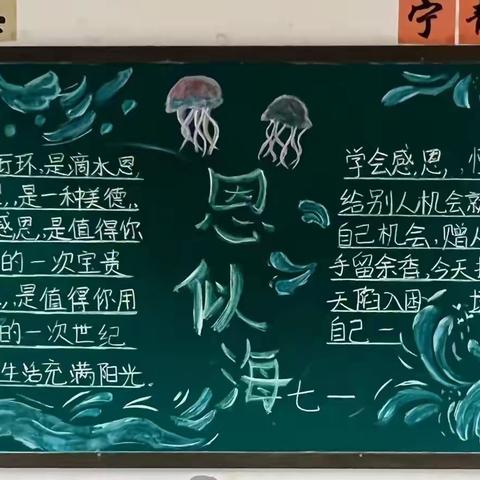 宁
衔环,是滴水恩,
,是一种美德,
感恩,是值得你
的一次宝贵
,是值得你用
的一次世纪
生活充满阳光.
恩似海
七一
学会感恩,
给别人机会就
自己机会,赠人
手留余香,今天
天陷入困
自己一